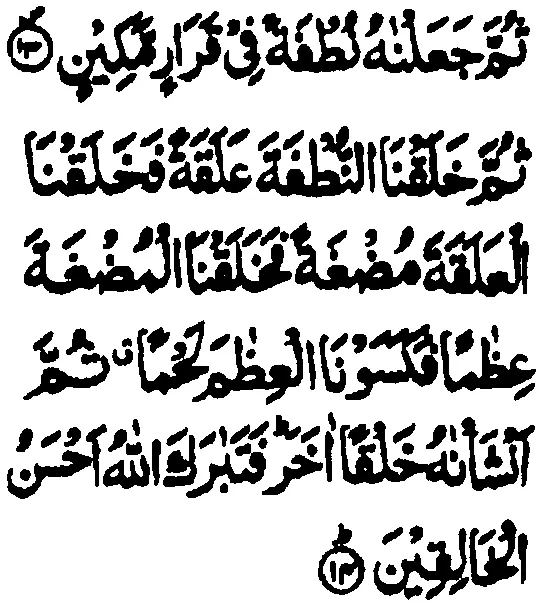 ثُمَّ جَعَلْنٰهُ نُطْفَةً فِىْ قَرَارٍ مَّكِيْنٍ ۝١٣
ثُمَّ خَلَقْنَا النُّطْفَةَ عَلَقَةً فَخَلَقْنَا
الْعَلَقَةَ مُضْغَةً فَخَلَقْنَا الْمُضْغَةَ
عِظٰمًا فَكَسَوْنَا الْعِظٰمَ لَحْمًا ثُمَّ
اَنْشَاْنٰهُ خَلْقًا اٰخَرَ ؕ فَتَبٰرَكَ اللّٰهُ اَحْسَنُ
الْخَالِقِيْنَ ۝١٤